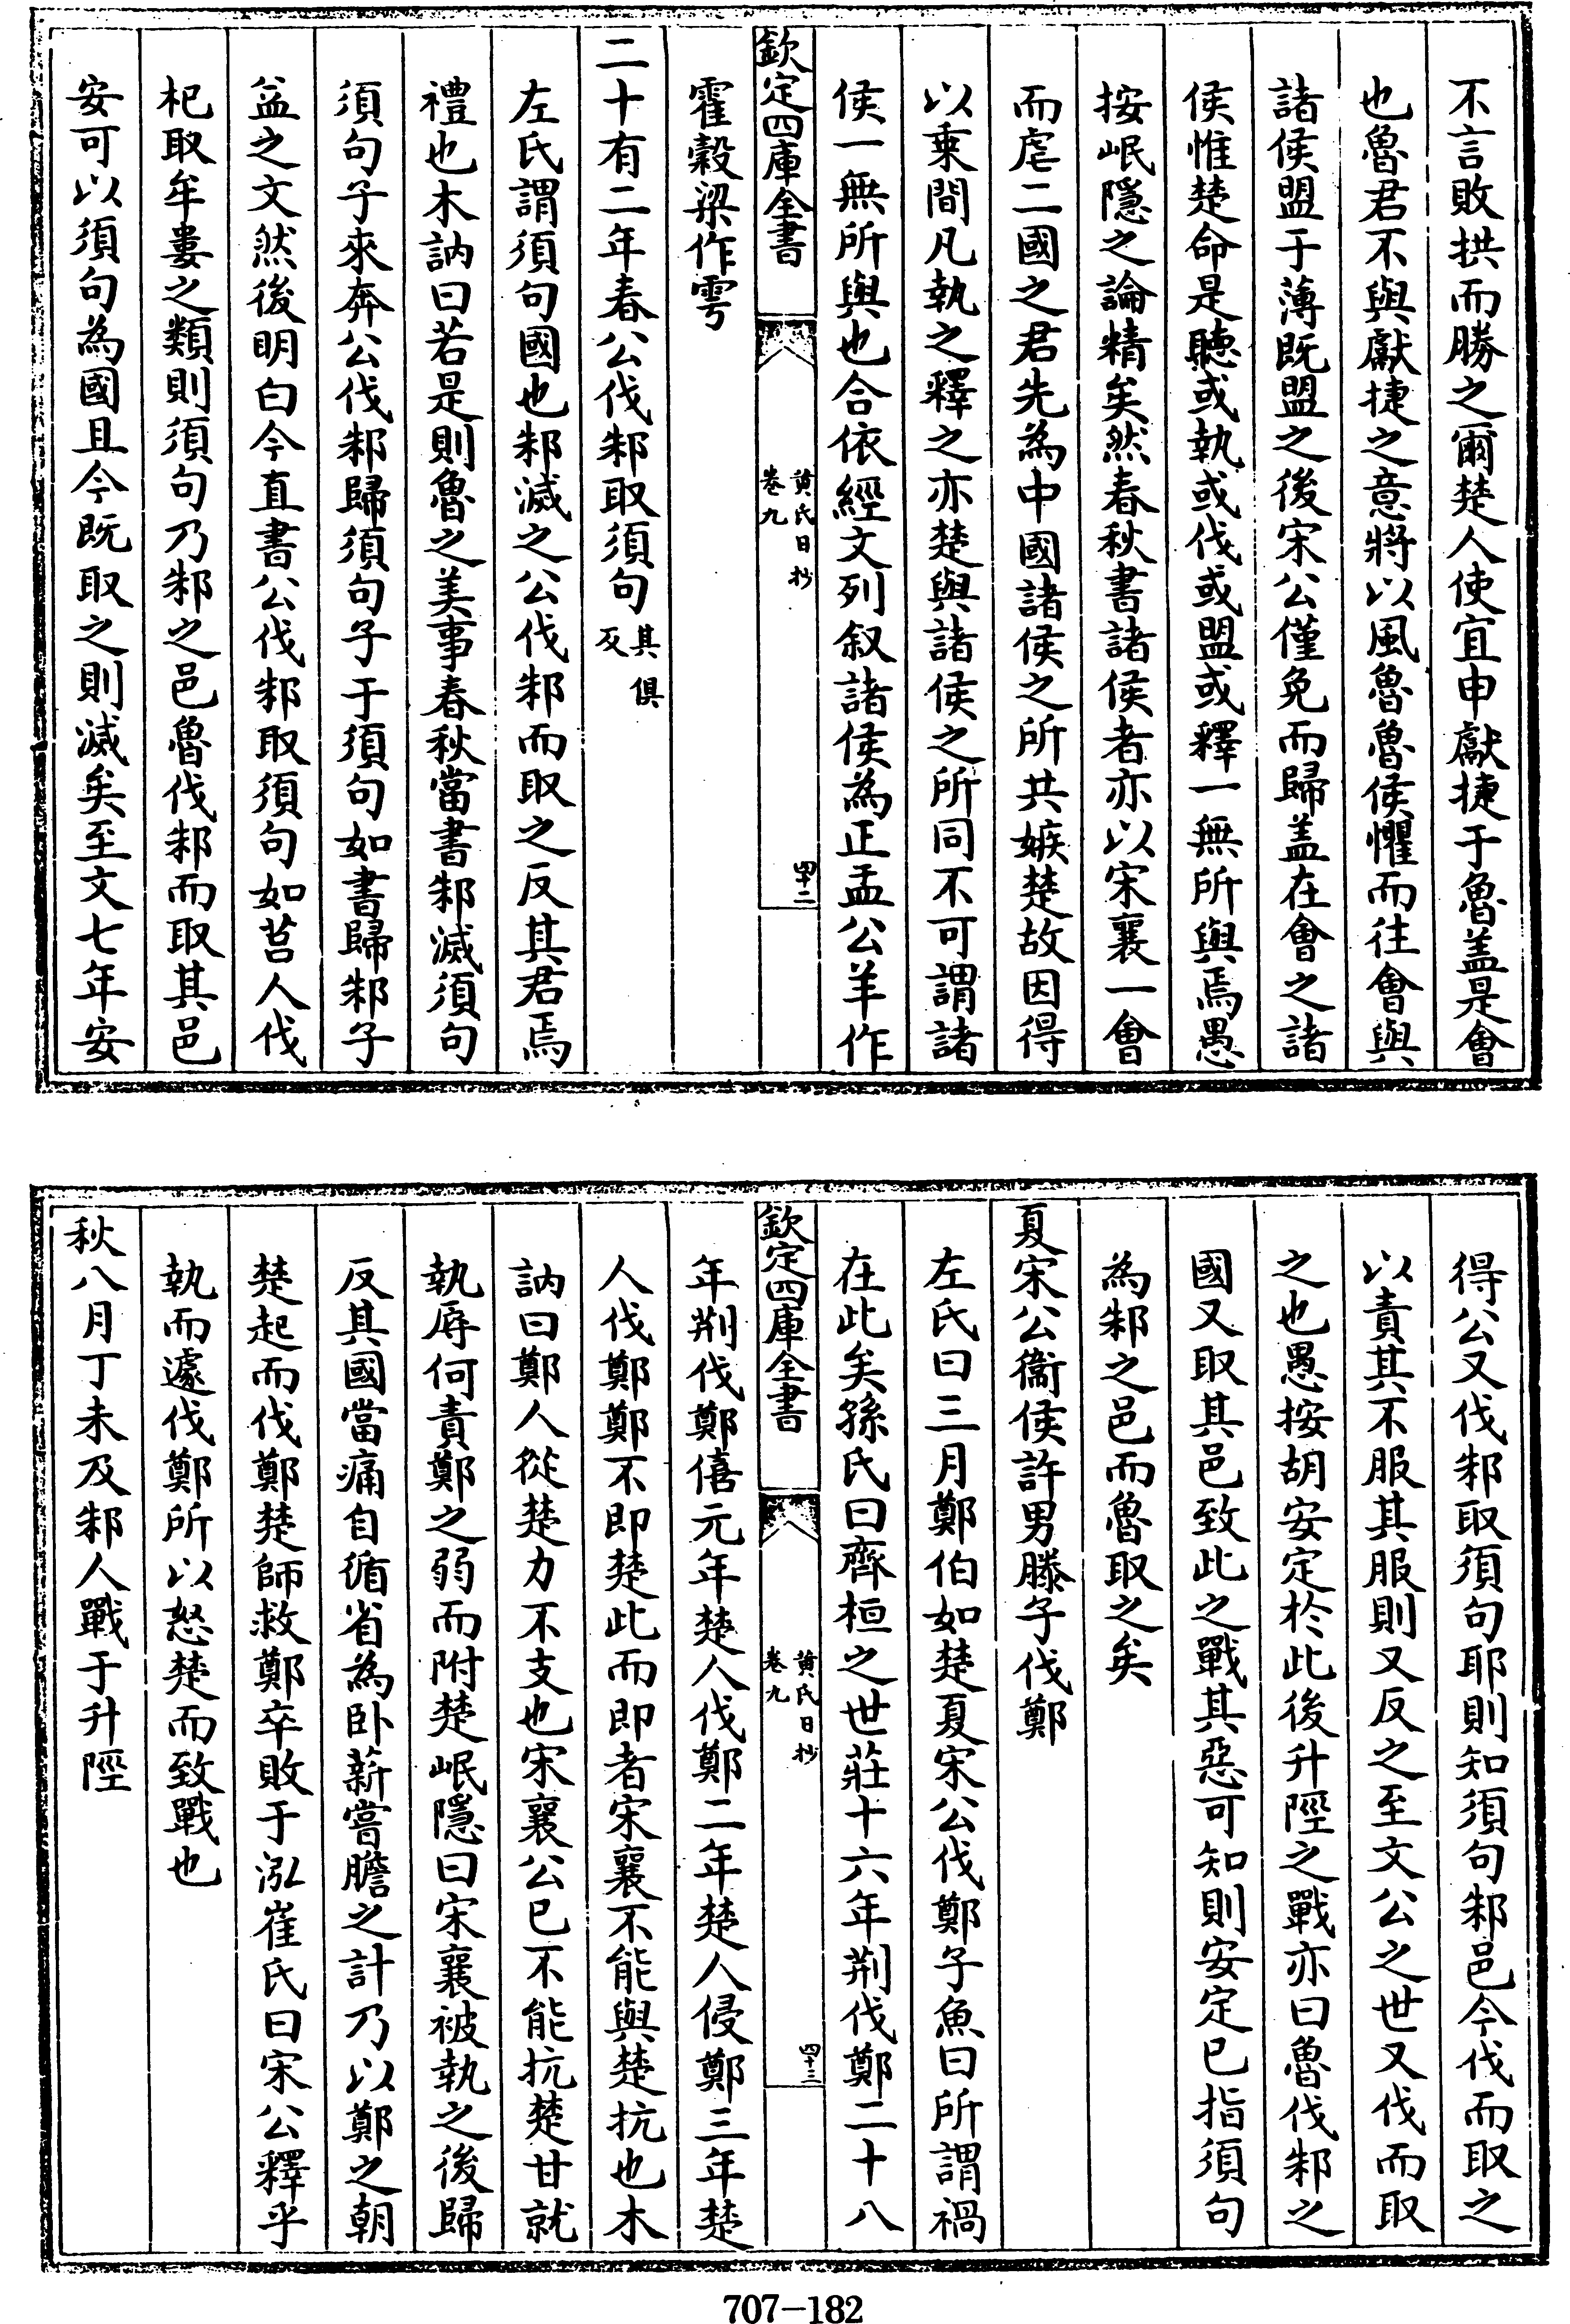 不言敗拱而勝之爾楚人使宜申獻捷于魯盖是會
也魯君不與獻捷之意將以風魯魯侯懼而往會與
諸侯盟于薄既盟之後宋公僅免而歸盖在會之諸
侯惟楚命是聽或執或伐或盟或釋一無所與焉愚
按岷隱之論精矣然春秋書諸侯者亦以宋襄一會
而虐二國之君先為中國諸侯之所共嫉楚故因得
以乗間凡執之釋之亦楚與諸侯之所同不可謂諸
侯一無所與也合依經文列叙諸侯為正盂公羊作
欽定四庫全書
黄氏日抄
卷九
四十二
霍穀梁作雩
二十有二年春公伐邾取須句其俱反
左氏謂須句國也邾滅之公伐邾而取之反其君焉
禮也木訥曰若是則魯之美事春秋當書邾滅須句
須句子來奔公伐邾歸須句子于須句如書歸邾子
益之文然後明白今直書公伐邾取須句如莒人伐
杞取牟婁之類則須句乃邾之邑魯伐邾而取其邑
安可以須句為國且今既取之則滅矣至文七年安
得公又伐邾取須句耶則知須句邾邑今伐而取之
以責其不服其服則又反之至文公之世又伐而取
之也愚按胡安定於此後升陘之戰亦曰魯伐邾之
國又取其邑致此之戰其惡可知則安定已指須句
為邾之邑而魯取之矣
夏宋公衞侯許男滕子伐鄭
左氏曰三月鄭伯如楚夏宋公伐鄭子魚曰所謂禍
在此矣孫氏曰齊桓之世莊十六年荆伐鄭二十八
欽定四庫全書
黄氏日抄
卷九
四十三
年荆伐鄭僖元年楚人伐鄭二年楚人侵鄭三年楚
人伐鄭鄭不即楚此而即者宋襄不能與楚抗也木
訥曰鄭人從楚力不支也宋襄公已不能抗楚甘就
執辱何責鄭之弱而附楚岷隱曰宋襄被執之後歸
反其國當痛自循省為卧薪嘗膽之計乃以鄭之朝
楚起而伐鄭楚師救鄭卒敗于泓崔氏曰宋公釋乎
執而遽伐鄭所以怒楚而致戰也
秋八月丁未及邾人戰于升陘
707-182